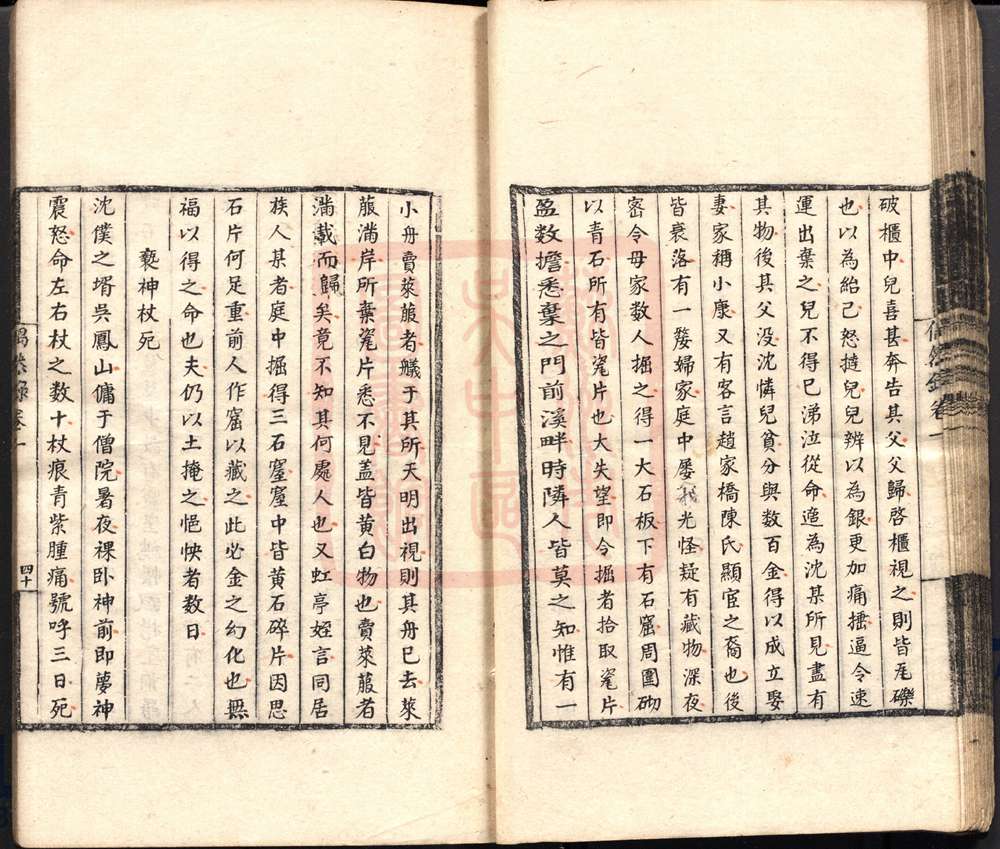 破櫃中兒喜甚奔告其父父歸啓櫃視之則皆瓦礫
也以為紿己怒撻兒兒辨以為銀更加痛搔逼令速
運出棄之兒不得已涕泣從命造為沈某所見盡有
其物後其父没沈憐兒貧分與数百金得以成立娶
妻家稱小康又有客言趙家橋陳氏顯宦之裔也後
皆衰落有一嫠婦家庭中屡義光怪疑有藏物深夜
密令毋家数人掘之得一大石板下有石窟周圍砌
以青石所有皆瓷片也大失望即令掘者拾取瓷片
盈数擔悉棄之門前溪畔時隣人皆莫之知惟有一
小舟賣萊菔者艤于其所天明出視則其舟已去萊
菔滿岸所棄瓷片悉不見盖皆黄白物也賣萊菔者
滿載而歸矣竟不知其何處人也又虹亭姪言同居
族人某者庭中掘得三石窒窟中皆黄石碎片因思
石片何足重前人作窟以藏之此必金之幻化也無
福以得之命也夫仍以土掩之悒怏者数日
褻神杖死
沈僕之壻吳鳳山傭于僧院暑夜裸卧神前即夢神
震怒命左右杖之数十杖痕青紫腫痛號呼三日死
四十